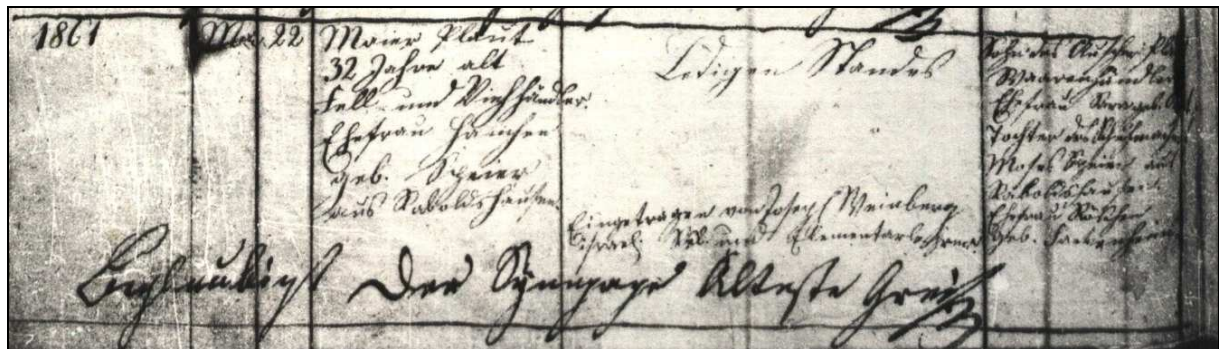 1861
Mai 22
Maier Plaut
32 Jahre alt
Fell und Viehhändler
Ehefrau Hanchen
geb. Speier
aus Raboldshausen
Ledigen Standes
Eingetragen von Joseph Weinberg
Israel. Rel. und Elementarlehrer
Sohn des
Waarenhändler
Ehefrau Sara geb.
Tochter des
Moses Speier aus
Raboldshausen
Ehefrau Röschen
geb.
Beglaubigt Der Synagoge Älteste